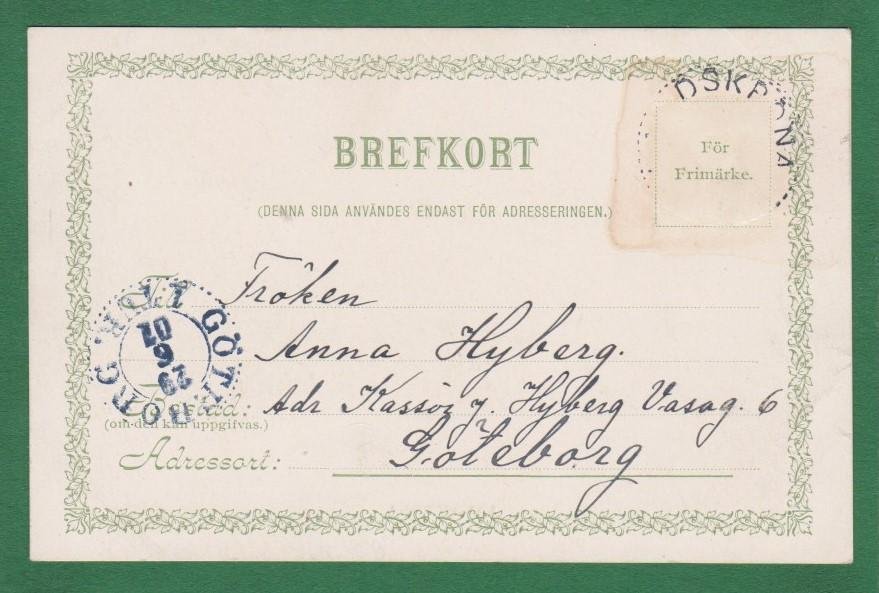 BREFKORT
(DENNA SIDA ANVÄNDES ENDAST FÖR ADRESSERINGEN.)
DSKRONA
För
Frimärke.
Till
Fröken
Anna Hyberg.
Bostad: Adr Kassör J. Hyberg Vasag. 6
(om den kan uppgifvas.)
Adressort: Göteborg
GÖTEBORG
29
6
01